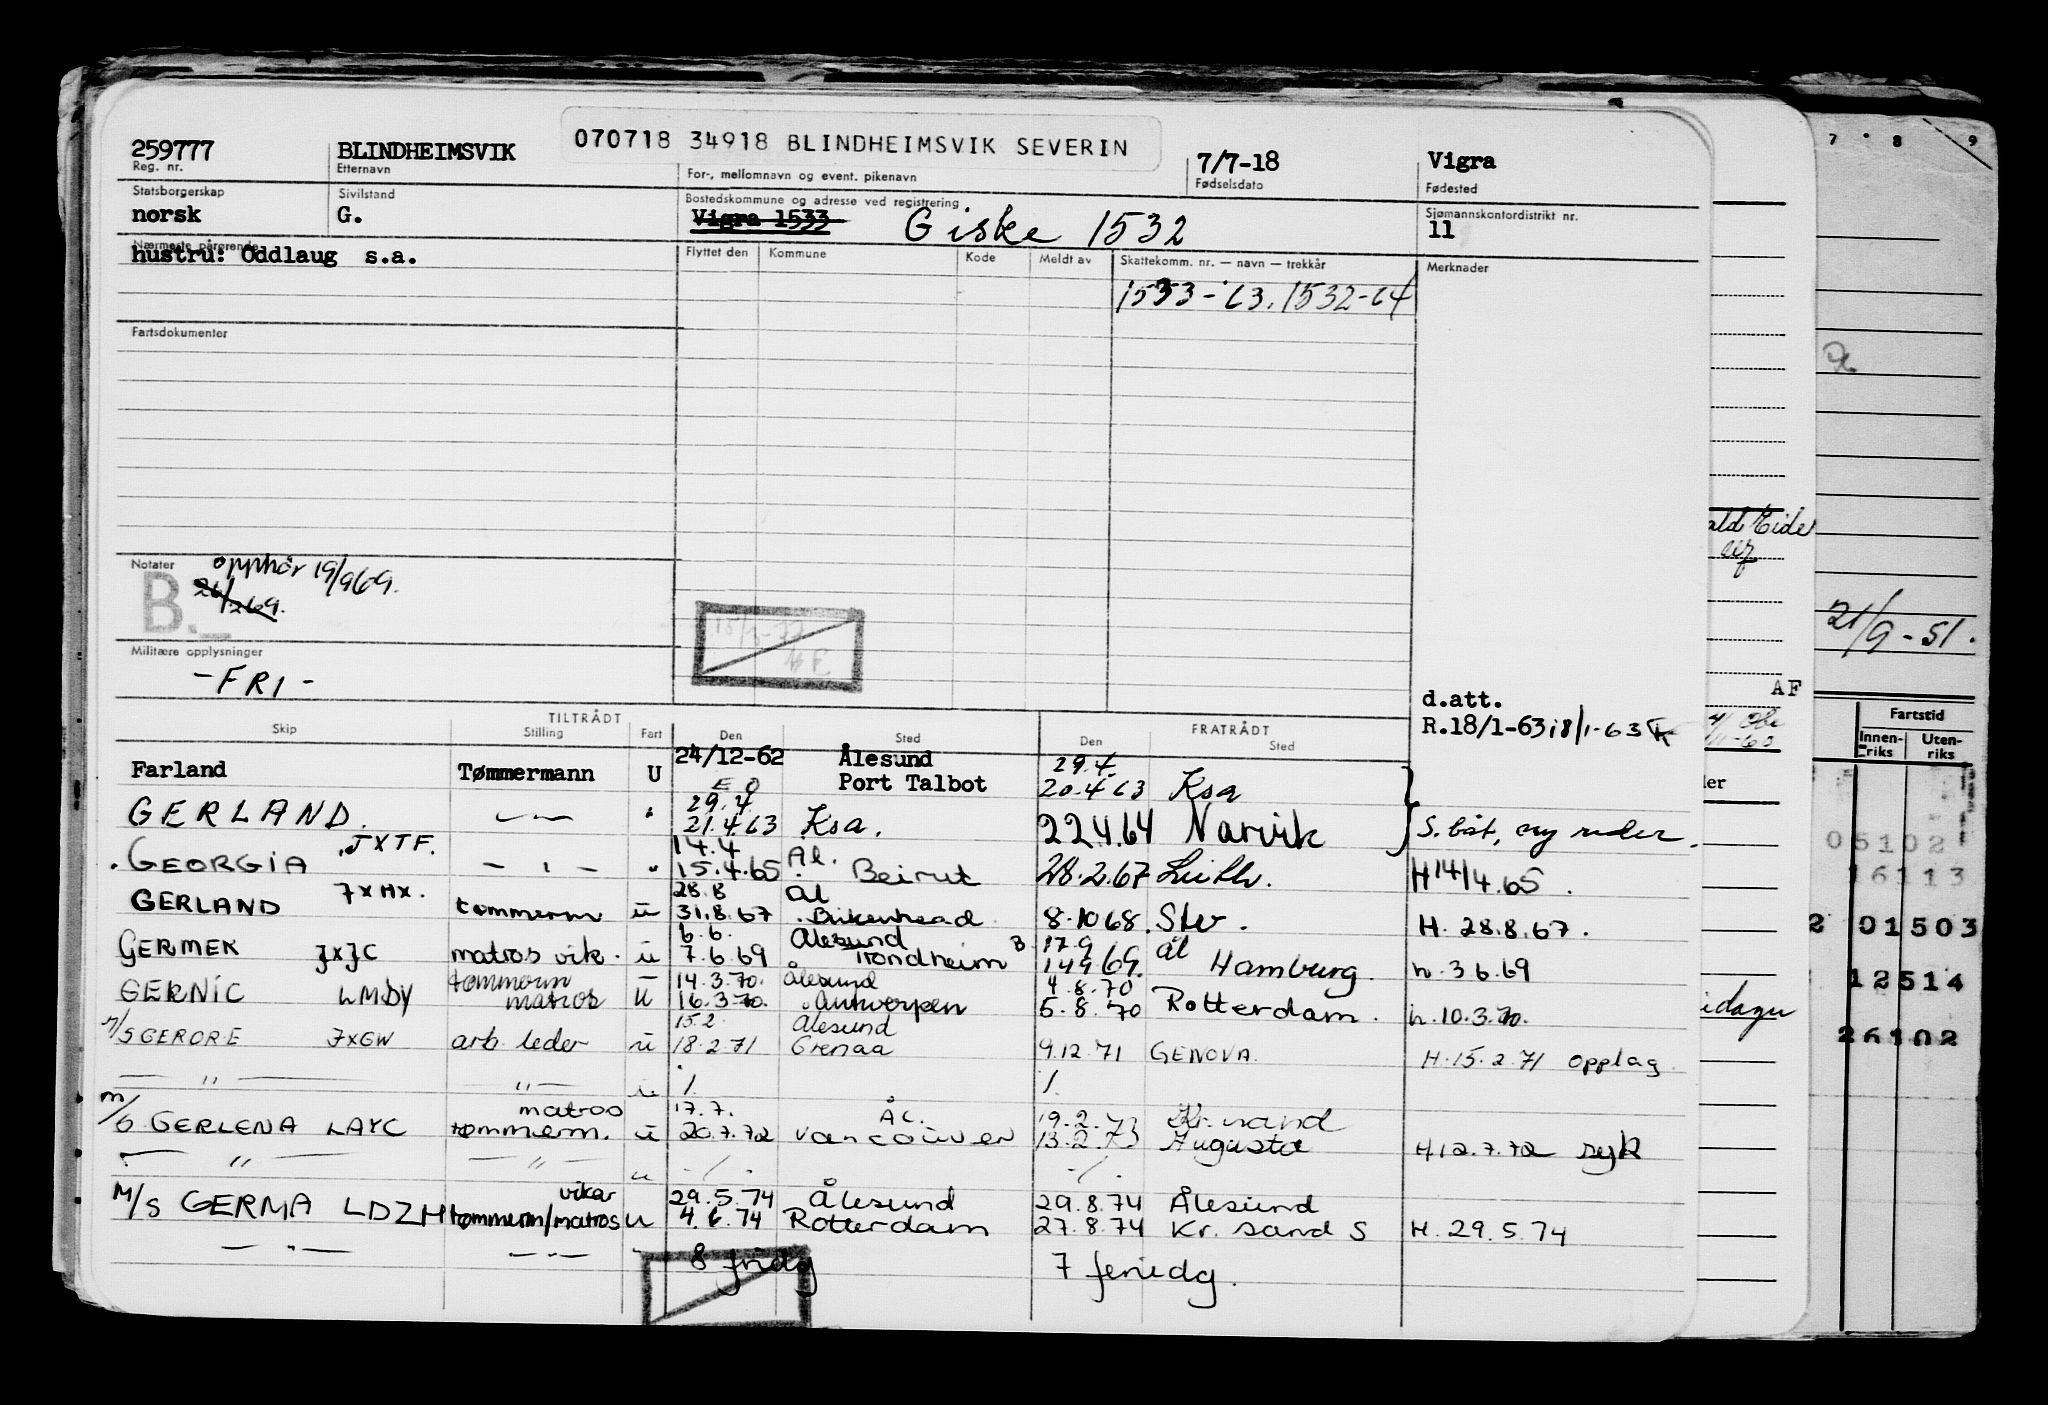 070718 34918 BLINDHEIMSVIK SEVERIN
259777 BLINDHEIMSVIK 7/7-18 Vigra
Reg. nr. Etternavn For-, mellomnavn og event. pikenavn Fødselsdato Fødested
Statsborgerskap Sivilstand Bostedskommune og adresse ved registrering Sjømannskontordistrikt nr.
norsk G. Vigra 1533 Giske 1532 11
Nærmeste pårørende Flyttet den Kommune Kode Meldt av Skattekomm. nr. — navn — trekkår Merknader
hustru: Oddlaug s.a.
1533-63. 1532-64
Fartsdokumenter
Notater opphør 19/969.
26/269.
B.
Militære opplysninger
-FRI-
d.att.
R.18/1-63 18/1-63
TILTRÅDT FRATRÅDT
Skip Stilling Fart Den Sted Den Sted
24/12-62 Ålesund 29.4.
Farland Tømmermann U Port Talbot 20.4.63 Ksa
29.4.
GERLAND. 21.4.63 Ksa. 22.4.64 Narvik S. båt,
JXTF. 14.4 Ål.
GEORGIA 15.4.65 Beirut 28.2.67 H14/4.65.
JXHX. 28.8 Ål
GERLAND tømmerm u 31.8.67 Birkenhead 8.10 68. H. 28.8.67.
6.6. Ålesund 17.9 Ål
GERMEK JXJC matros vik. u 7.6.69 Trondheim 14969. Hamburg. h. 3 6.69
tømmerm 14.3.70. Ålesund 4.8.70
GERNIC LMDY matros u 16.3.70. Antwerpen 5.8.70 Rotterdam. h. 10.3.70.
15.2. Ålesund
M/S GERORE JXGW arb. leder u 18.2.71 Grenaa 9.12.71 GENOVA. H.15.2.71 opplag
— " — — " — u
matros 17.7. ÅL. 19.2.73 Kr.sand
M/S GERLENA LAYC tømmerm. u 20.7.72 Vancouver 13.2.73 Augusta H12.7.72 syk
— " — — " — u
vikar 29.5.74 Ålesund 29.8.74 Ålesund
M/S GERMA LDZH tømmerm/matros u 4.6.74 Rotterdam 27.8.74 Kr. sand S H. 29.5.74
— " — — " — 8 fridg 7 feriedg.
7 8 9
ald Eide
21/9-51.
AF
Fartstid
Innenriks Utenriks
05102
16113
2 01503
12514
26102